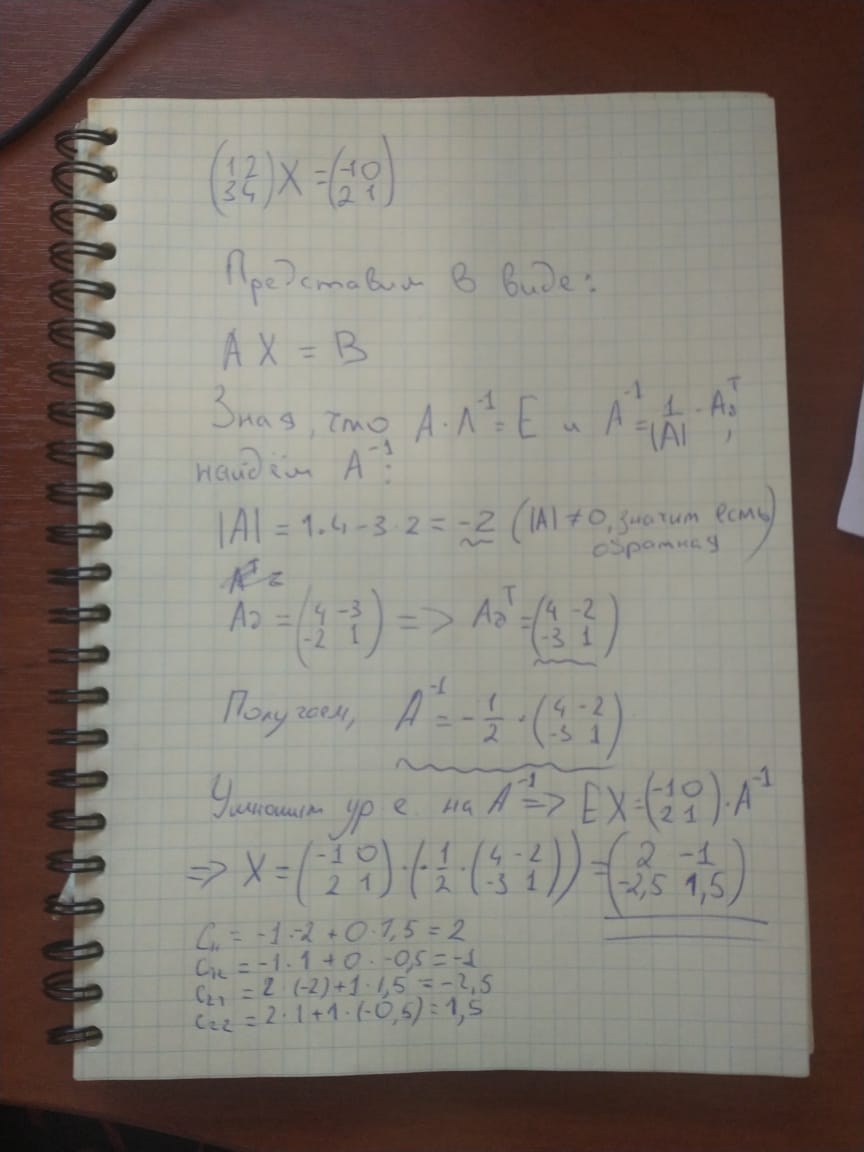 (1 2
3 4) X = (-1 0
2 1)
Представим в виде:
A X = B
Зная, что A · A⁻¹ = E и A⁻¹ = 1/|A| · A∂ᵀ,
найдём A⁻¹:
|A| = 1·4 - 3·2 = -2 (|A| ≠ 0, значит есть
обратная)
A∂ = (4 -3
-2 1) => A∂ᵀ = (4 -2
-3 1)
Получаем, A⁻¹ = - 1/2 · (4 -2
-3 1)
Умножим ур е на A⁻¹ => E X = (-1 0
2 1) · A⁻¹
=> X = (-1 0
2 1) · (- 1/2 · (4 -2
-3 1)) = (2 -1
-2,5 1,5)
C₁₁ = -1·-2 + 0·1,5 = 2
C₁₂ = -1·1 + 0·-0,5 = -1
C₂₁ = 2·(-2)+1·1,5 = -2,5
C₂₂ = 2·1+1·(-0,5) = 1,5